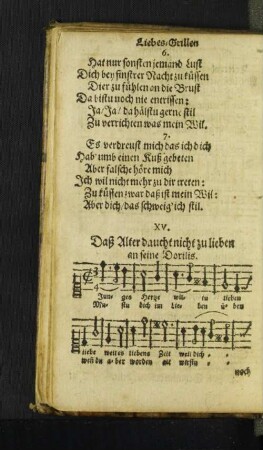 Liebes-Grillen
6.
Hat nur sonsten jemand Lust
Dich bey finstrer Nacht zu küssen
Dier zu fühlen an die Brust
Da bistu noch nie entrissen:
Ja/Ja/da hälstu gerne stil
Zu verrichten was mein Wil.
7.
Es verdreust mich das ich dich
Hab' umb einen Kuß gebeten
Aber falsche höre mich
Ich wil nicht mehr zu dir treten:
Zu küssen zwar daß ist mein Wil:
Aber dich/das schweig' ich stil.
XV.
Daß Alter daucht nicht zu lieben
an seine Dortlis.
Jun- ges Hertze wil- tu lieben
Mu- stu dich im Lie- ben ü- ben
liebe weil es liebens Zeit weil dich
wen du a- ber worden alt wirstu
noch